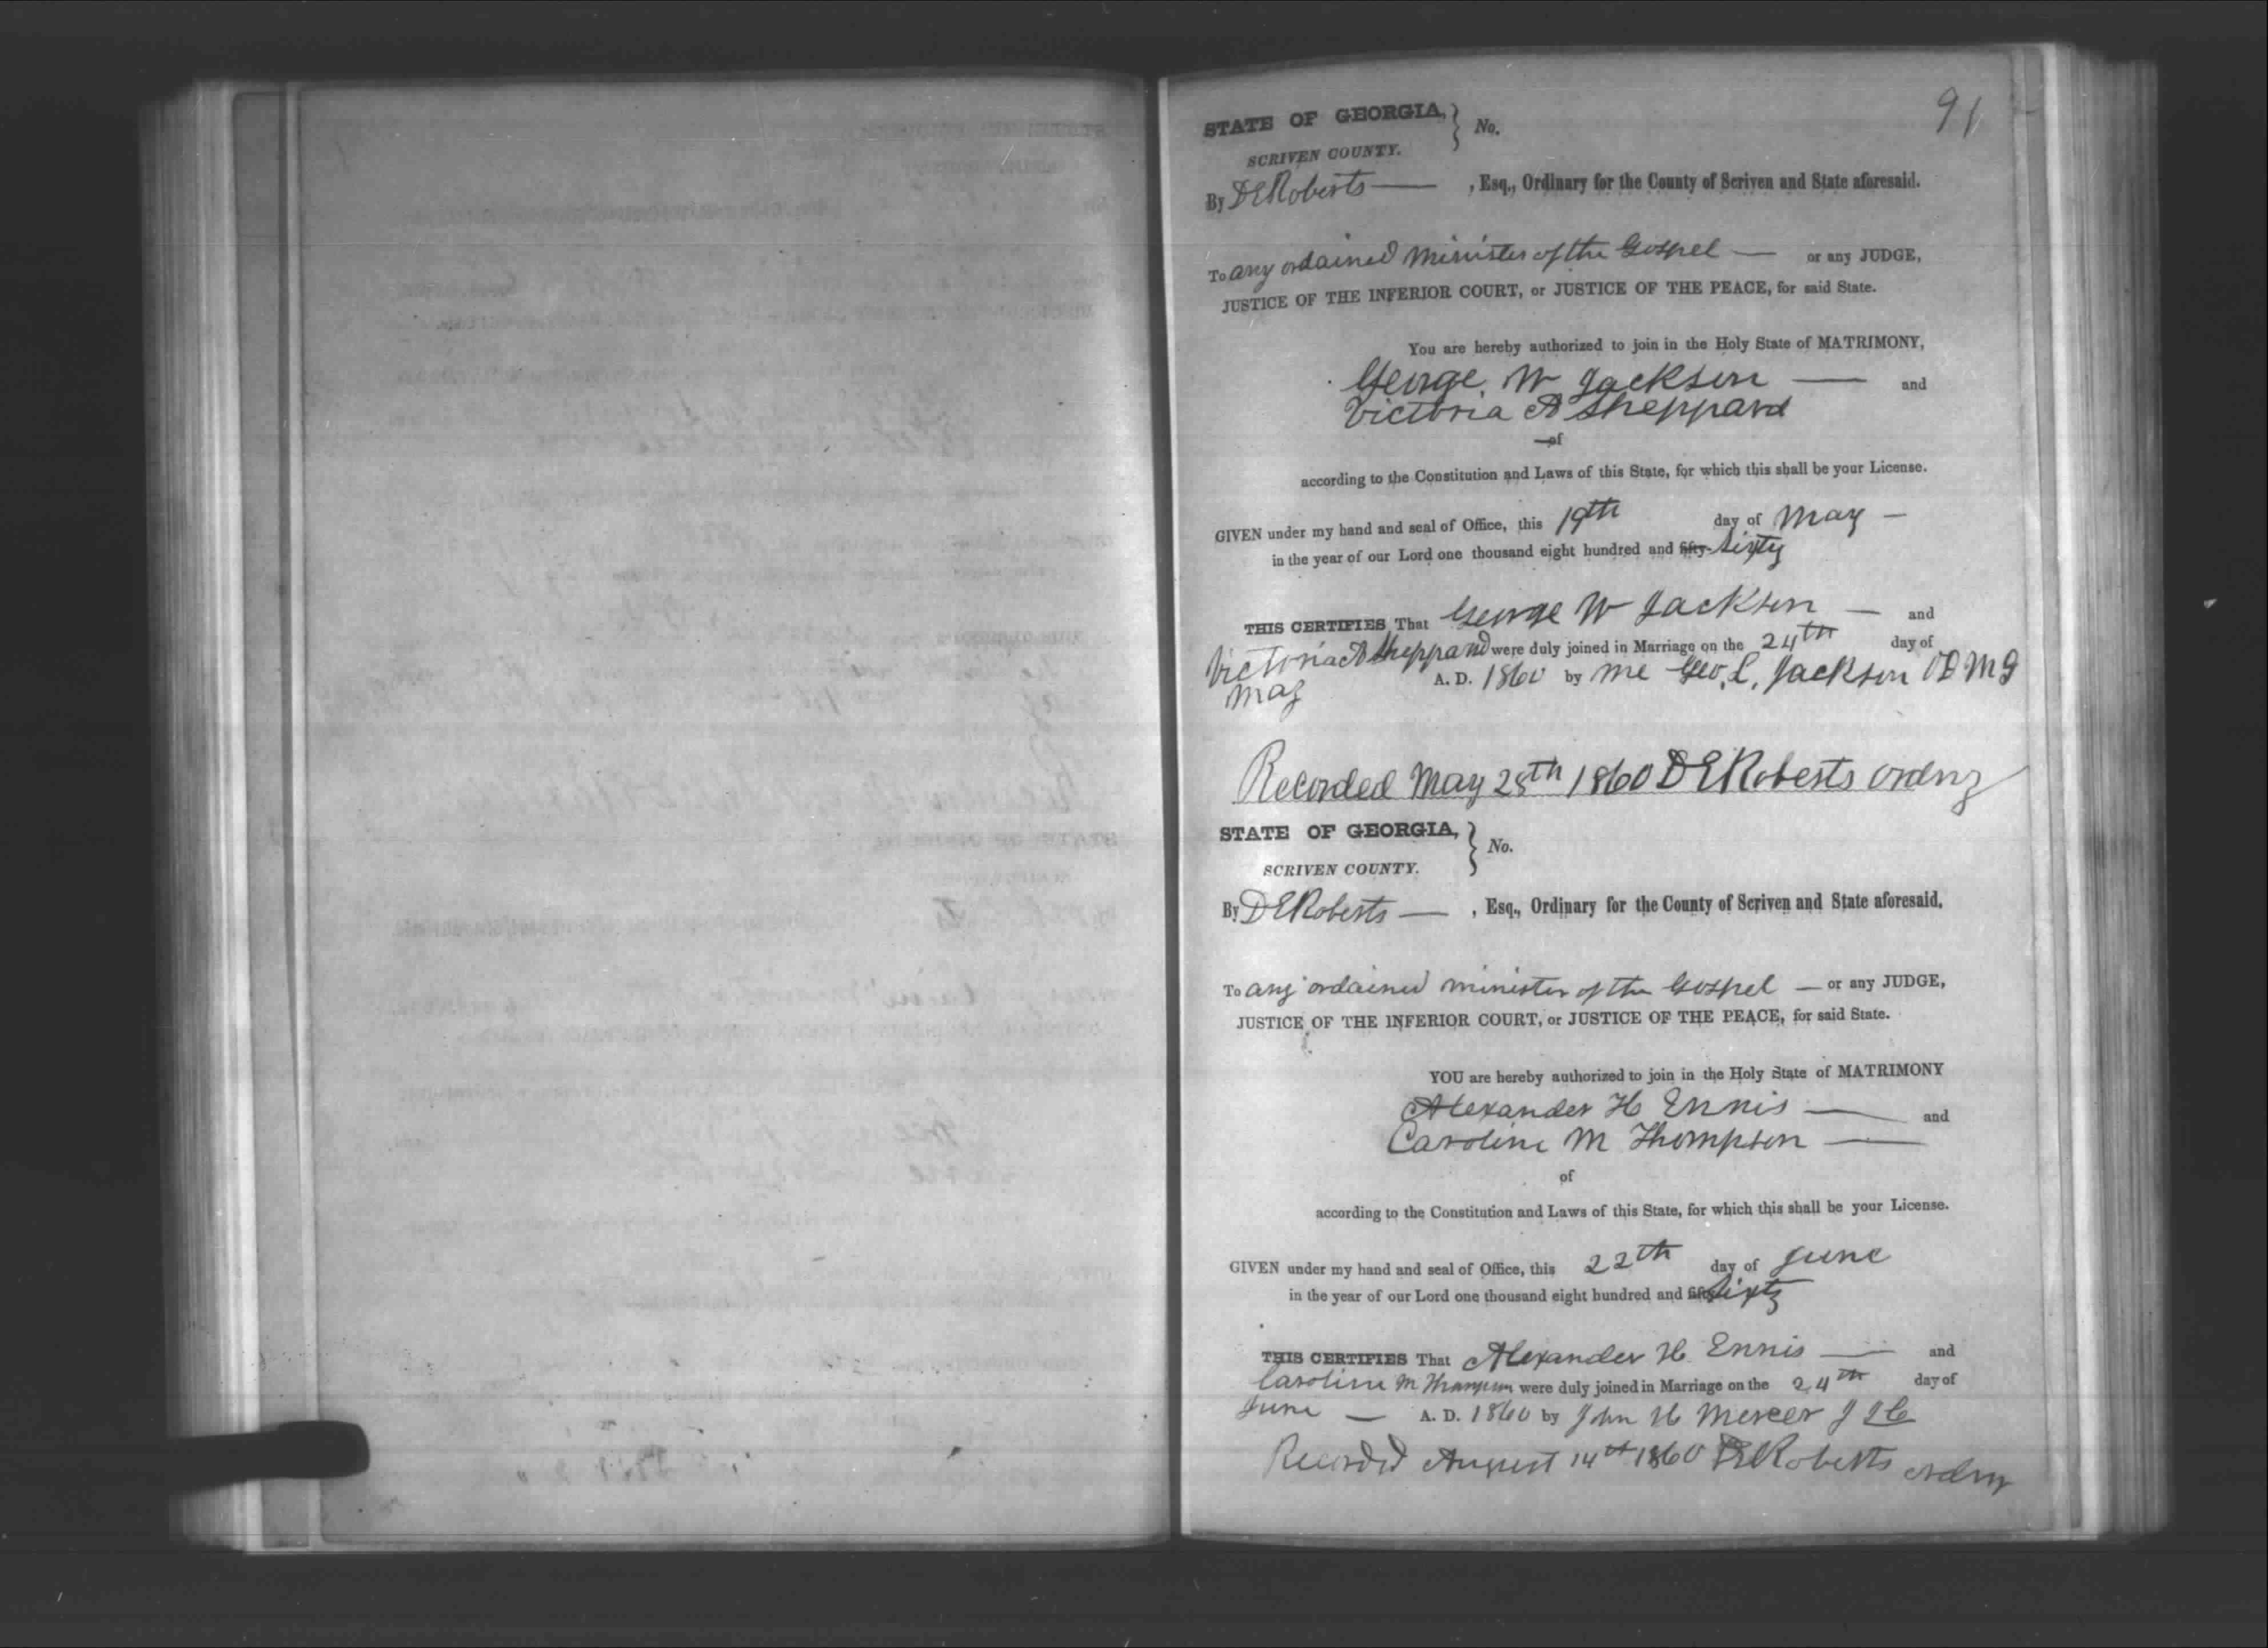 91
STATE OF GEORGIA, } No.
SCRIVEN COUNTY.
By D E Roberts — , Esq., Ordinary for the County of Scriven and State aforesaid.
To any ordained Minister of the Gospel — or any JUDGE,
JUSTICE OF THE INFERIOR COURT, or JUSTICE OF THE PEACE, for said State.
You are hereby authorized to join in the Holy State of MATRIMONY,
George W Jackson — and
Victoria A Sheppard
of
according to the Constitution and Laws of this State, for which this shall be your License.
GIVEN under my hand and seal of Office, this 19th day of May —
in the year of our Lord one thousand eight hundred and fifty- Sixty
THIS CERTIFIES That George W Jackson — and
Victoria A Sheppard were duly joined in Marriage on the 24th day of
May A. D. 1860 by me Geo. L. Jackson
Recorded May 28th 1860 D E Roberts ordny
STATE OF GEORGIA, } No.
SCRIVEN COUNTY.
By D E Roberts — , Esq., Ordinary for the County of Scriven and State aforesaid.
To any ordained minister of the Gospel — or any JUDGE,
JUSTICE OF THE INFERIOR COURT, or JUSTICE OF THE PEACE, for said State.
YOU are hereby authorized to join in the Holy State of MATRIMONY
Alexander H Ennis — and
Caroline M Thompson —
of
according to the Constitution and Laws of this State, for which this shall be your License.
GIVEN under my hand and seal of Office, this 22th day of June
in the year of our Lord one thousand eight hundred and fifty Sixty
THIS CERTIFIES That Alexander H Ennis — and
Caroline M Thompson were duly joined in Marriage on the 24th day of
June — A. D. 1860 by John H Mercer J I C
Recorded August 14th 1860 D E Roberts ordny